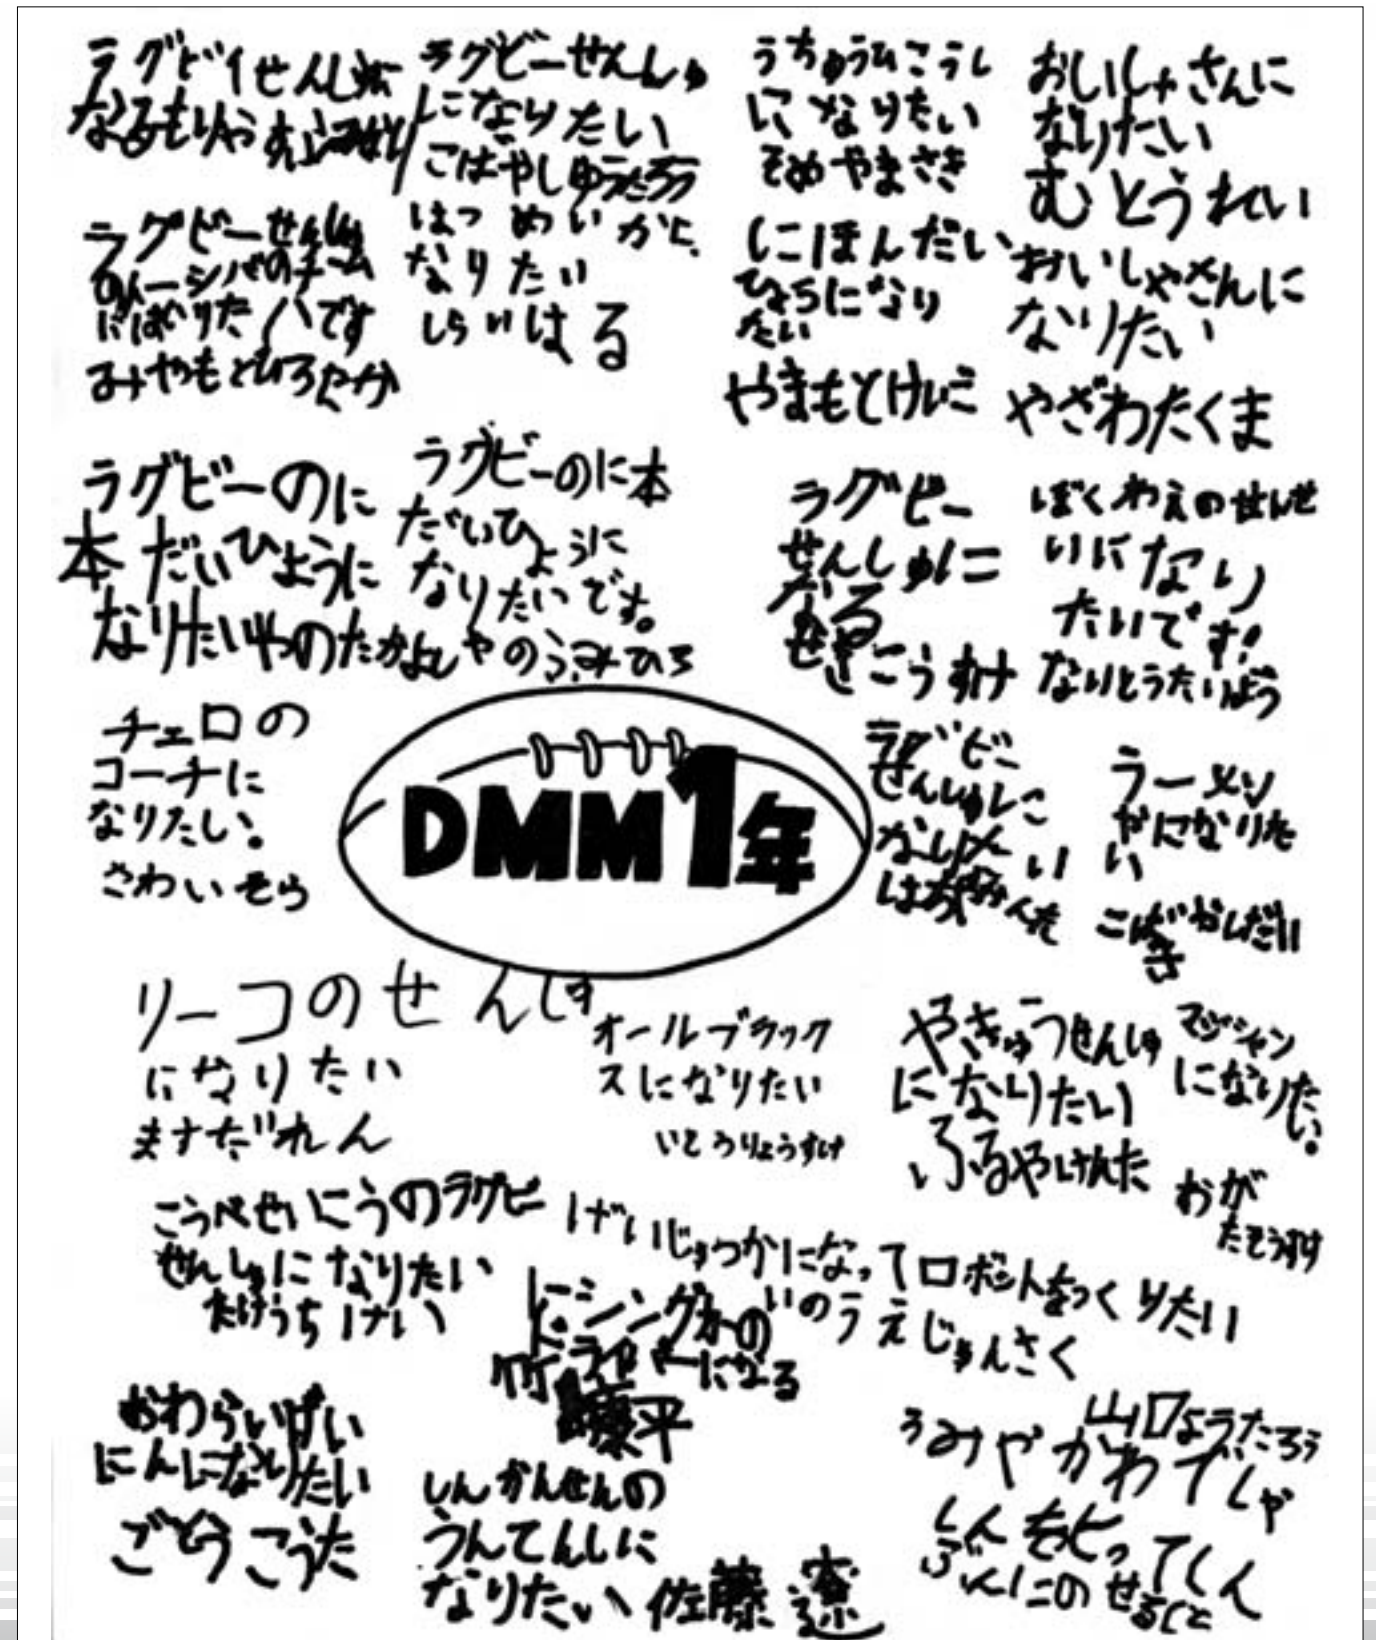 ラグビーせんしゅ
になりたい
こばやしゅうたろう
うちゅうひこうし
になりたい
そめやまさき
おいしゃさんに
なりたい
むとうれい
はつめいかに
なりたい
しらいはる
にほんだい
ひょうになり
たい
やまもとけんご
おいしゃさんに
なりたい
やざわたくま
ラグビーのに
本だいひょうに
なりたいやのたかよし
ラグビーのに本
だいひょうに
なりたいです。
やのうみひろ
ラグビー
せんしゅに
なる
こうすけ
ぼくわえのせんせ
いになり
たいです!
ないとうたいよう
チェロの
コーチに
なりたい。
さわいそら
DMM1年
ラグビー
せんしゅに
ラーメン
やになりた
い
リーコのせんしゅ
になりたい
ますだれん
オールブラック
スになりたい
いとうりょうすけ
やきゅうせんしゅ
になりたい
ふるやけんた
マジシャン
になりたい。
おが
たそうすけ
こうべせいこうのラグビー
せんしゅになりたい
たけうちけい
げいじゅつかになってロボットをつくりたい
いのうえじゅんさく
レーシングカーの
ドライバーになる
おわらいげい
にんになりたい
ごとうこうた
しんかんせんの
うんてんしに
なりたい 佐藤遼
山口ようたろう
うみやかわでしゃ
しんをとってしん
ぶんにのせること